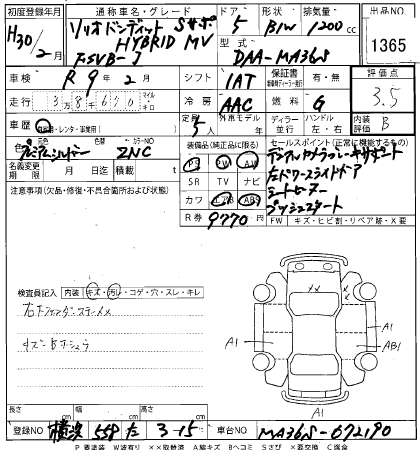 初度登録年月
H30/2月
通称車名・グレード
ソリオ バンディット Sサポ
HYBRID MV
FSVB-J
ドア
5
形状
B/W
排気量
1200
cc
型式
DAA-MA36S
出品NO
1365
車検
R9年2月
シフト
IAT
保証書
有・無
評価点
3.5
走行
38670
マイル
キロ
冷房
AAC
燃料
G
車歴
自家用・レンタ・事業用( )
定員
5人
外車モデル
年式
ディーラー
並行
ハンドル
左・右
内装
B
色
元色
プレミアムシルバー
色替
カラーNO
ZNC
名義変更
期限
月 日迄
積載
t
装備品(純正品に限る)
PS PW AW
SR TV ナビ
カワ エアB ABS
R券
9770
セールスポイント(正常に機能するもの)
デュアルカメラブレーキサポート
左パワースライドドア
シートヒーター
プッシュスタート
FW
キズ・ヒビ割・リペア跡・X要
注意事項(欠品・修復・不具合箇所および状態)
検査員記入
内装
キズ・汚れ・コゲ・穴・スレ・キレ
右フェンダーステーメメ
イズーBホシュウ
A1
××
A1
AB1
A1
長さ
cm
幅
cm
高さ
cm
登録NO
横浜 558 た 3-15
車台NO
MA36S-672190
P 要塗装 W波有り ××取替済 A線キズ Bヘコミ Sさび ×要交換 C腐食